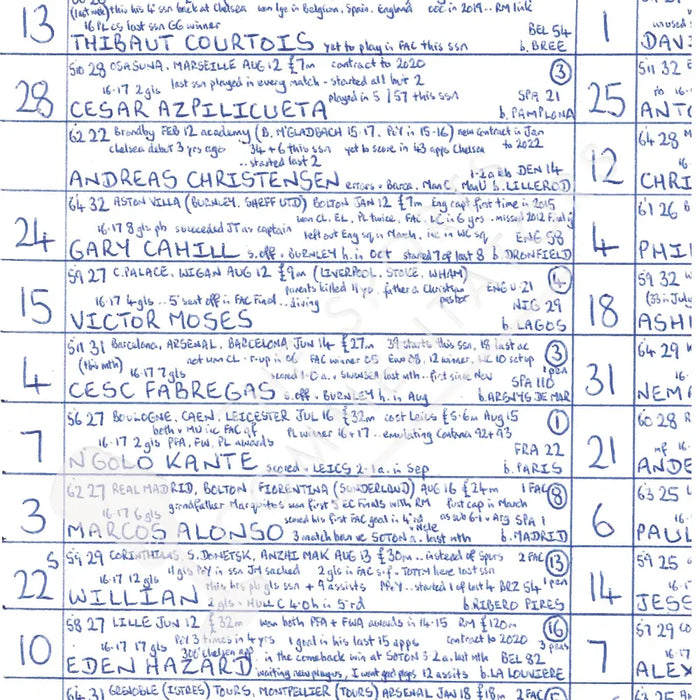 (last wk) this his 4th ssn back at Chelsea won lge in Belgium, Spain, England CCC in 2019.. RM link
16 PL cs last ssn GG winner BEL 54
13 THIBAUT COURTOIS yet to play in FAC this ssn b. BREE 1 DAVI
510 28 OSASUNA, MARSEILLE AUG 12 £7m contract to 2020 3
16-17 2 gls last ssn played in every match - started all but 2
28 CESAR AZPILICUETA played in 51/57 this ssn SPA 21 b. PAMPLONA 25 ANTO
62 22 Brondby FEB 12 academy (B. M'GLADBACH 15-17. PoY in 15-16) new contract in Jan
Chelsea debut 3 yrs ago 34+6 this ssn yet to score in 43 apps Chelsea to 2022
..started last 2
12 ANDREAS CHRISTENSEN errors v Barca, Man C, Man U DEN 14 b. LILLEROD CHRI
64 32 ASTON VILLA (BURNLEY, SHEFF UTD) BOLTON JAN 12 £7m Eng capt first time in 2015
won CL, EL, PL twice, FAC, LC in 6 yrs - missed 2012 Final
16-17 8 gls succeeded JT as captain left out Eng sq in March ENG 58
24 GARY CAHILL s.off v BURNLEY h. in Oct started 7 of last 8 b. DRONFIELD 4 PHIL
59 27 C.PALACE, WIGAN AUG 12 £9m (LIVERPOOL, STOKE, WHAM) 4
parents killed 11 yo, father a Christian pastor ENG U-21
16-17 4 gls .. 5 sent off in FAC Final .. diving NIG 29
15 VICTOR MOSES b. LAGOS 18 ASHL
511 31 Barcelona, ARSENAL, BARCELONA JUN 14 £27m 39 starts this ssn, 18 last ac 3
(this mth) not won CL - r-up in 06 FAC winner 05 Euro 08, 12 winner, WC 10 setup 1 pen
16-17 7 gls scored 1-0 a. v SWNSEA last mth .. first since Nov SPA 110
4 CESC FABREGAS s.off v BURNLEY h. in Aug b. ARENYS DE MAR 31 NEMA
56 27 BOULOGNE, CAEN, LEICESTER JUL 16 £32m cost Leics £5.6m Aug 15 1
both v MU in FAC qf PL winner 16+17 .. emulating Cantona 92+93
16-17 2 gls PFA, FW, PL awards FRA 22
7 NGOLO KANTE scored v LEICS 2-1 a. in Sep b. PARIS 21 ANDE
62 27 REAL MADRID, BOLTON, FIORENTINA (SUNDERLAND) AUG 16 £24m 1 FAC 8
grandfather Marquitos won first 5 EC Finals with RM first cap in March
16-17 6 gls scored his first FAC goal in 4th rd as sub 6-1 v ARG SPA 1
3 MARCOS ALONSO 3 match ban ve SOTON a. last mth b. MADRID 6 PAUL
59 29 CORINTHIANS, S.DONETSK, ANZHI MAK AUG 13 £30m .. instead of Spurs 2 FAC 13
11 gls PoY in ssn JM sacked 2 gls in FAC s-f v TOTTM here last ssn 1 pen
16-17 12 gls this his pb gls ssn + 9 assists PPoY .. started 1 of last 4 BRZ 54
22 S WILLIAN 2 gls v HULL C 4-0 h in 5th rd b. RIBERO PIRES 14 JESS
58 27 LILLE JUN 12 £32m won both PFA + FWA awards in 14-15 RM £120m 16
PoY 3 times in 4 yrs 1 goal in his last 15 apps contract to 2020 3 pens
16-17 17 gls 300th Chelsea app in the comeback win at SOTON 3-2 a. last mth BEL 82
10 EDEN HAZARD wanting new players, 12 assists b. LA LOUVIERE 7 ALEX
64 31 GRENOBLE (ISTRES) TOURS, MONTPELLIER (TOURS) ARSENAL JAN 18 £18m 2 FAC